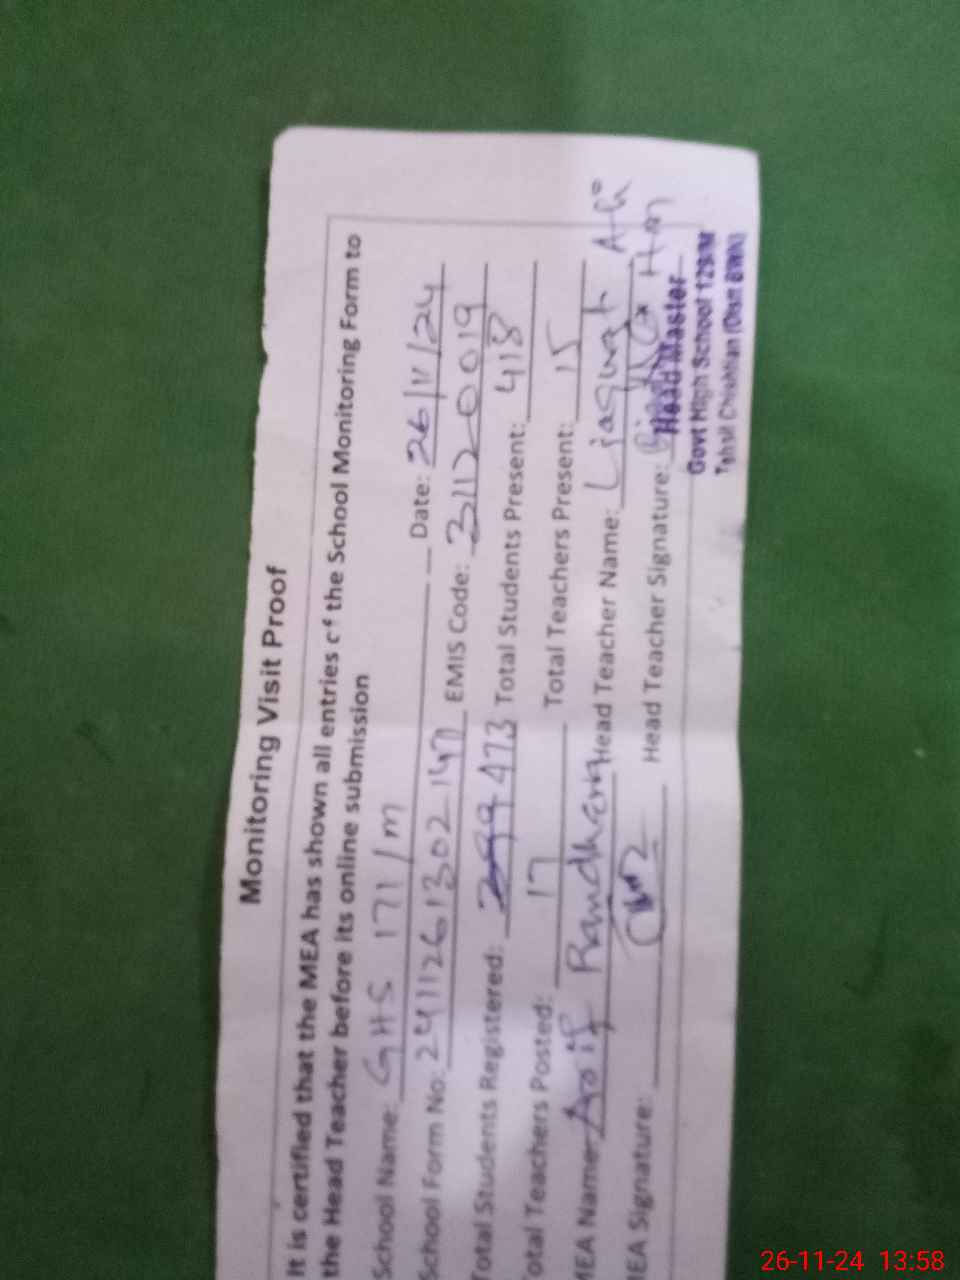 Monitoring Visit Proof
It is certified that the MEA has shown all entries of the School Monitoring Form to
the Head Teacher before its online submission
School Name: GHS 171/m Date: 26/11/24
School Form No: 2411261302147 EMIS Code: 31120019
Total Students Registered: 473 Total Students Present: 418
Total Teachers Posted: 17 Total Teachers Present: 15
MEA Name: Asif Randhawa Head Teacher Name: Liaquat Ali
MEA Signature: Head Teacher Signature: Hm
Head Master
Govt High School
Tehsil Chishtian (Distt BWN)
26-11-24 13:58